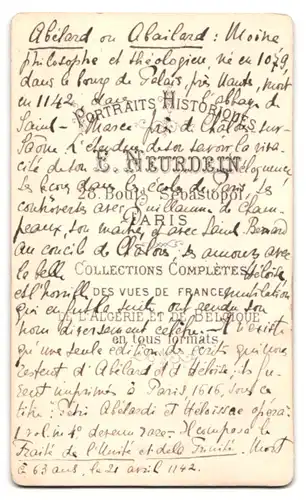 Abélard ou Abailard : Moine
philosophe et théologien, né en 1079,
dans le bourg de Palais, près Nantes, mort
en 1142, dans l'abbaye de
PORTRAITS HISTORIQUES
Saint-Marcel près de Châlons-sur-
Saône. L'étendue de son savoir, la viva-
cité de son éloquence
E. NEURDEIN
ses leçons dans les écoles de Paris, ses
28. Bould. Sébastopol,
controverses avec Guillaume de Cham-
PARIS
peaux, son maître, et avec Saint Bernard
au concile de ses amours avec
la belle Héloïse
COLLECTIONS COMPLÈTES
et l'horrible mutilation
DES VUES DE FRANCE
qui en fut la suite ont rendu son
DE L'ALGÉRIE ET DE BELGIQUE
nom diversement célèbre. Il n'existe
en tous formats
qu'une seule édition des écrits qui nous
restent d'Abélard et d'Héloïse : ils fu-
rent imprimés à Paris 1616, sous ce
titre : Petri Abælardi et Heloissae opera.
1 vol. in 4° devenu rare - Il composa le
Traité de l'Unité et de la Trinité. Mort
à 63 ans, le 21 avril 1142.